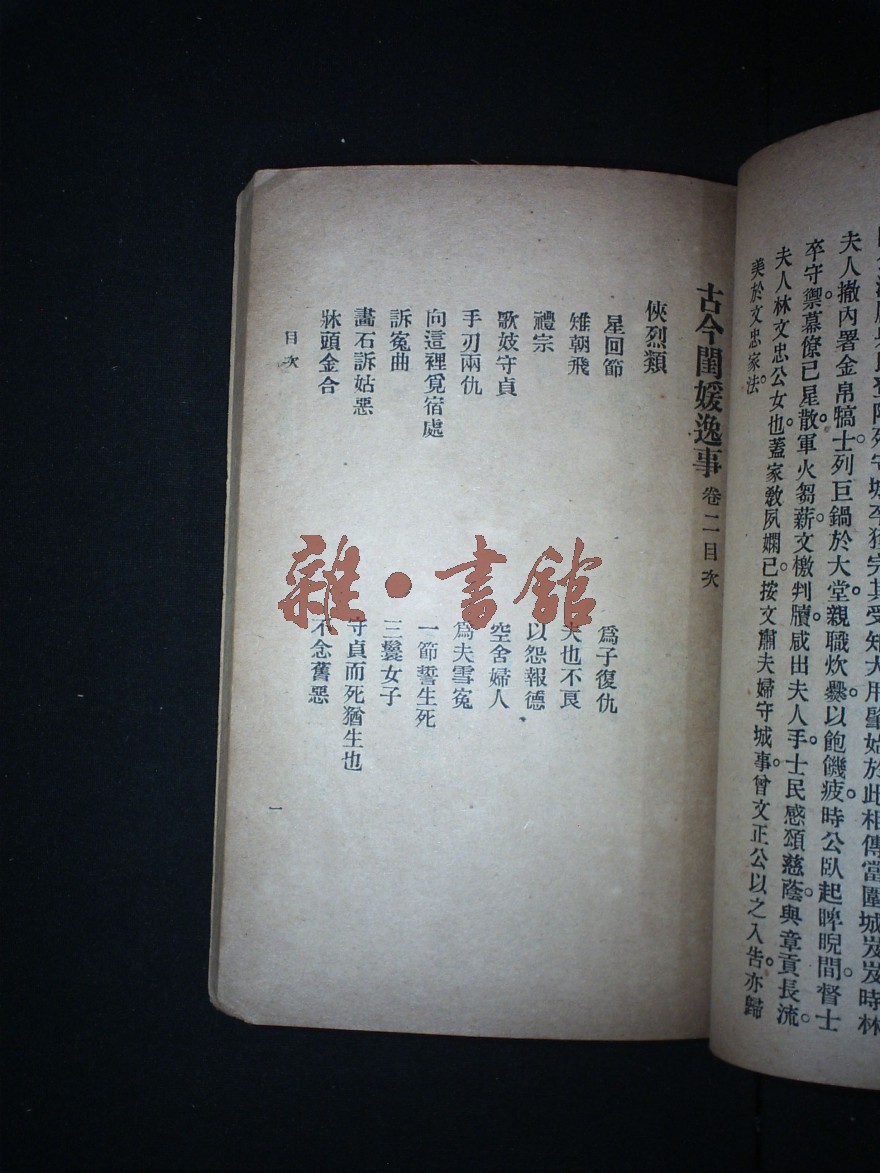 夫人撤內署金帛犒士列巨鍋於大堂親職炊爨以飽饑疲時公臥起睥睨間督士
卒守禦幕僚已星散軍火芻薪文檄判牘咸出夫人手士民感頌慈蔭與章貢長流
夫人林文忠公女也蓋家敎夙嫻已按文肅夫婦守城事曾文正公以之入告亦歸
美於文忠家法。
古今閨媛逸事 卷二目次
俠烈類
星回節
爲子復仇
雉朝飛
夫也不良
禮宗
以怨報德
歌妓守貞
空舍婦人
手刃兩仇
爲夫雪冤
向這裡覓宿處
一節誓生死
訴冤曲
三鬟女子
畫石訴姑惡
守貞而死猶生也
牀頭金合
不念舊惡
目次
一
雜·書館